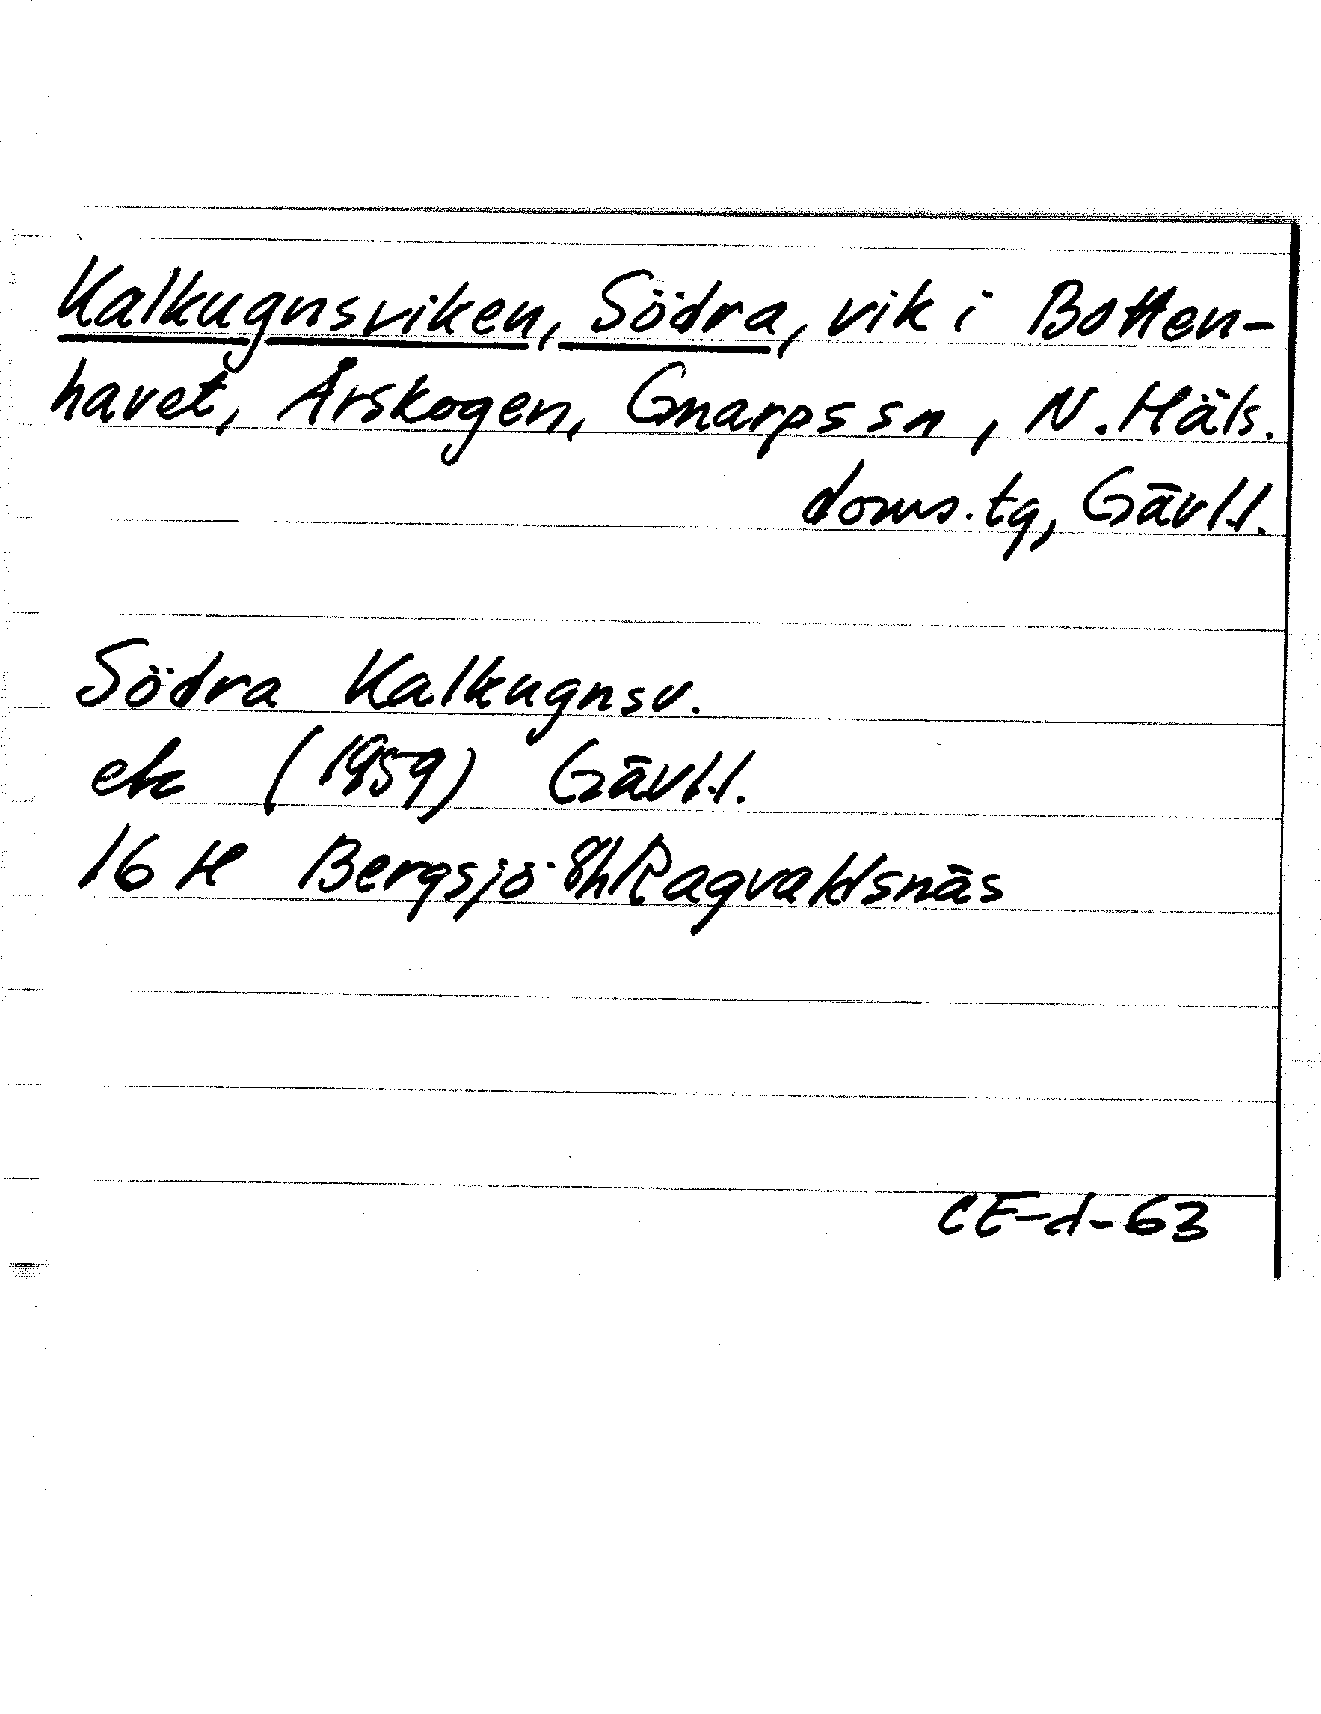 Kalkugnsviken, Södra, vik i Botten-
havet, Årskogen, Gnarps sn, N. Häls.
doms. tg, Gävl.l.
Södra Kalkugnsv.
ek (1959) Gävl.l.
16 H Bergsjö 8h Ragvaldsnäs
CE-d-63